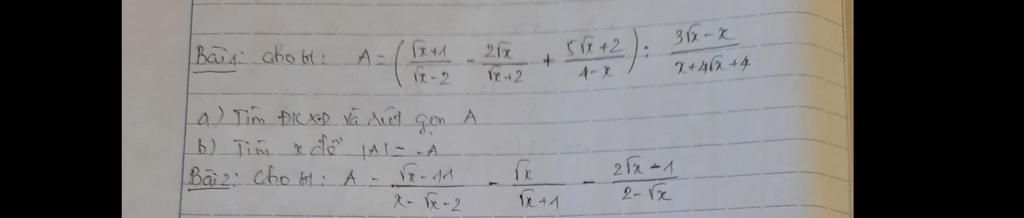 Bài 1: Cho bt: A = (√x+1/√x-2 - 2√x/√x+2 + 5√x+2/4-x) : 3√x-x/x+4√x+4
a) Tìm ĐKXĐ và rút gọn A
b) Tìm x để |A| = -A
Bài 2: Cho bt: A = √x-11/x-√x-2 - √x/√x+1 - 2√x-1/2-√x